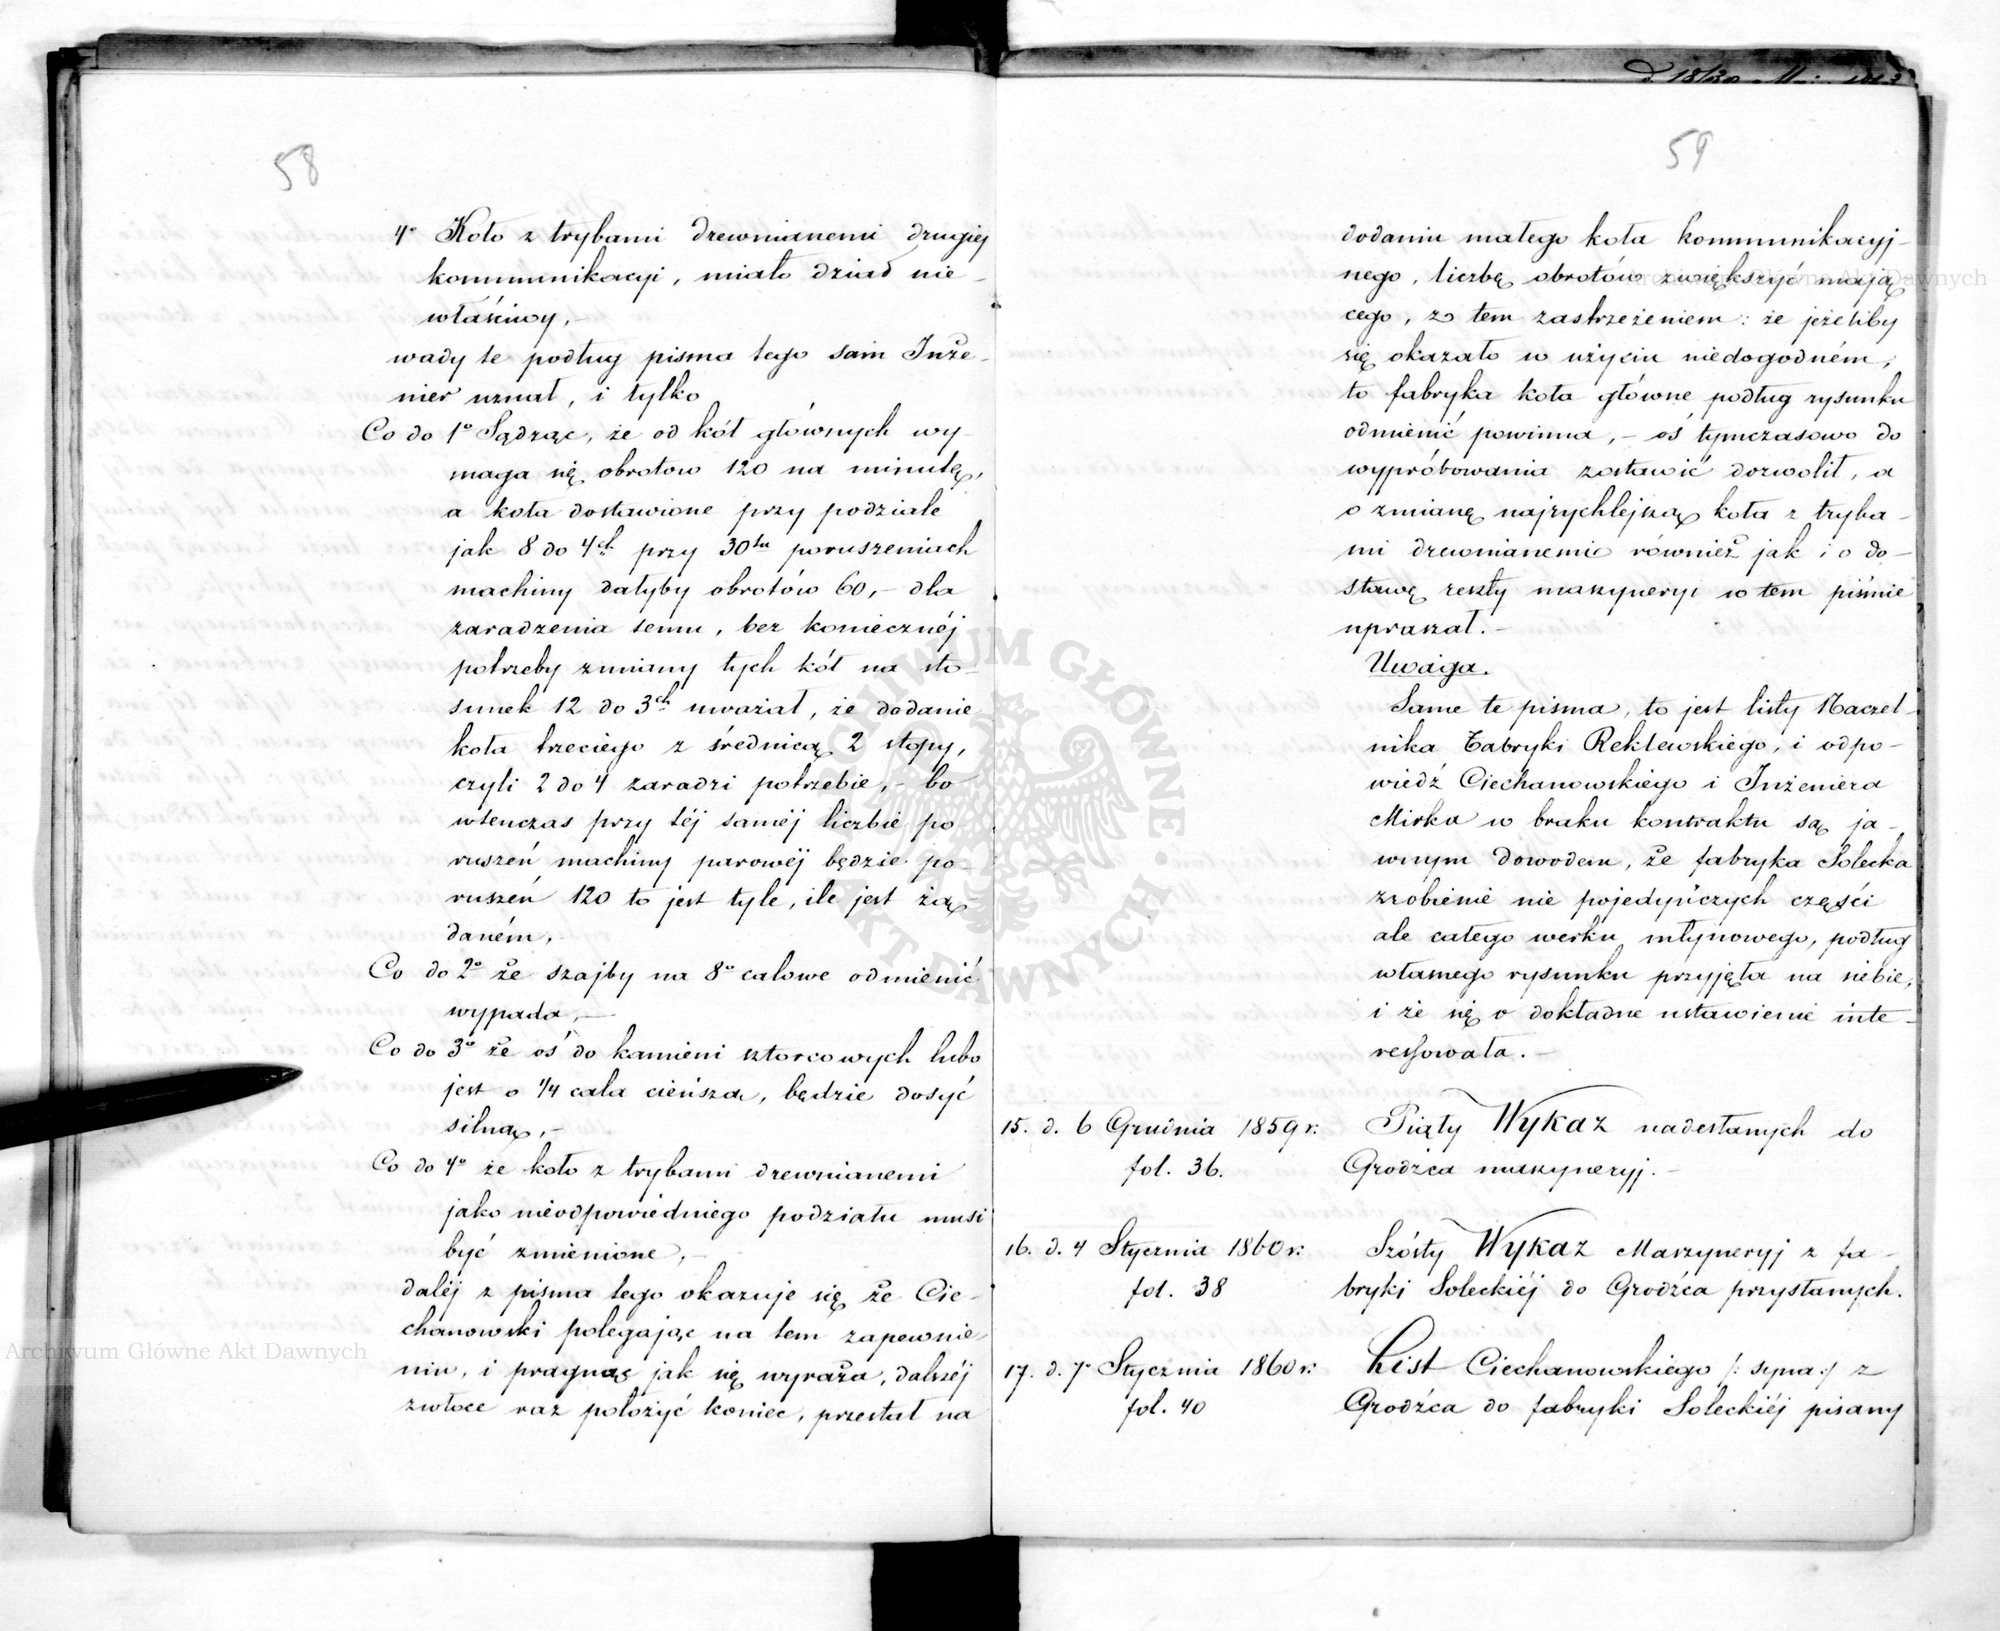 58
4º Koło z trybami drewnianemi drugiej
kommunikacyi, miało dział nie-
właściwy,-
wady te podług pisma tego sam Inże-
nier uznał, i tylko
Co do 1º Sądząc, że od kół głównych wy-
maga się obrotow 120 na minutę,
a koła dostawione przy podziale
jak 8 do 4ch przy 30tu poruszeniach
machiny dałyby obrotów 60,- dla
zaradzenia temu, bez koniecznéj
potrzeby zmiany tych kół na sto-
sunek 12 do 3ch uważał, że dodanie
koła trzeciego z średnicą 2 stopy,
czyli 2 do 4 zaradzi potrzebie,- bo
wtenczas przy téj saméj liczbie po
ruszeń machiny parowéj będzie po-
ruszeń 120 to jest tyle, ile jest żą-
daném,
Co do 2º że szajby na 8º calowe odmienić
wypada,-
Co do 3º że oś do kamieni sztorcowych lubo
jest o 1/4 cala cieńsza, będzie dosyć
silną,-
Co do 4º że koło z trybami drewnianemi
jako nieodpowiedniego podziału musi
być zmienione,-
daléj z pisma tego okazuje się że Cie-
chanowski polegając na tem zapewnie-
niu, i pragnąc jak się wyraża, dalszéj
zwłoce raz położyć koniec, przestał na
59
dodaniu małego koła kommunikacyj-
nego, liczbę obrotów zwiększyć mają
cego, z tem zastrzeżeniem: że jeżeliby
się okazało w użyciu niedogodném,
to fabryka koła główne podług rysunku
odmienić powinna,- oś tymczasowo do
wypróbowania zostawić dozwolił, a
o zmianę najrychlejszą koła z tryba-
mi drewnianemi również jak i o do-
stawę reszty maszyneryi w tem piśmie
upraszał.-
Uwaga.
Same te pisma, to jest listy Naczel-
nika Fabryki Reklewskiego, i odpo-
wiedź Ciechanowskiego i Inżeniera
Mirka w braku kontraktu są ja-
wnym dowodem, że fabryka Solecka
zrobienie nie pojedyńczych części
ale całego werku młynowego, podług
własnego rysunku przyjęła na siebie,
i że się o dokładne ustawienie inte-
ressowała.-
15. d. 6 Grudnia 1859 r. Piąty Wykaz nadesłanych do
fol. 36. Grodźca maszyneryj.-
16. d. 4 Stycznia 1860 r. Szósty Wykaz Maszyneryj z fa-
fol. 38 bryki Soleckiéj do Grodźca przysłanych.
17. d. 7º Stycznia 1860 r. List Ciechanowskiego /: syna :/ z
fol. 40 Grodźca do fabryki Soleckiéj pisany
Archiwum Główne Akt Dawnych
Archiwum Główne Akt Dawnych
ARCHIWUM GŁÓWNE AKT DAWNYCH